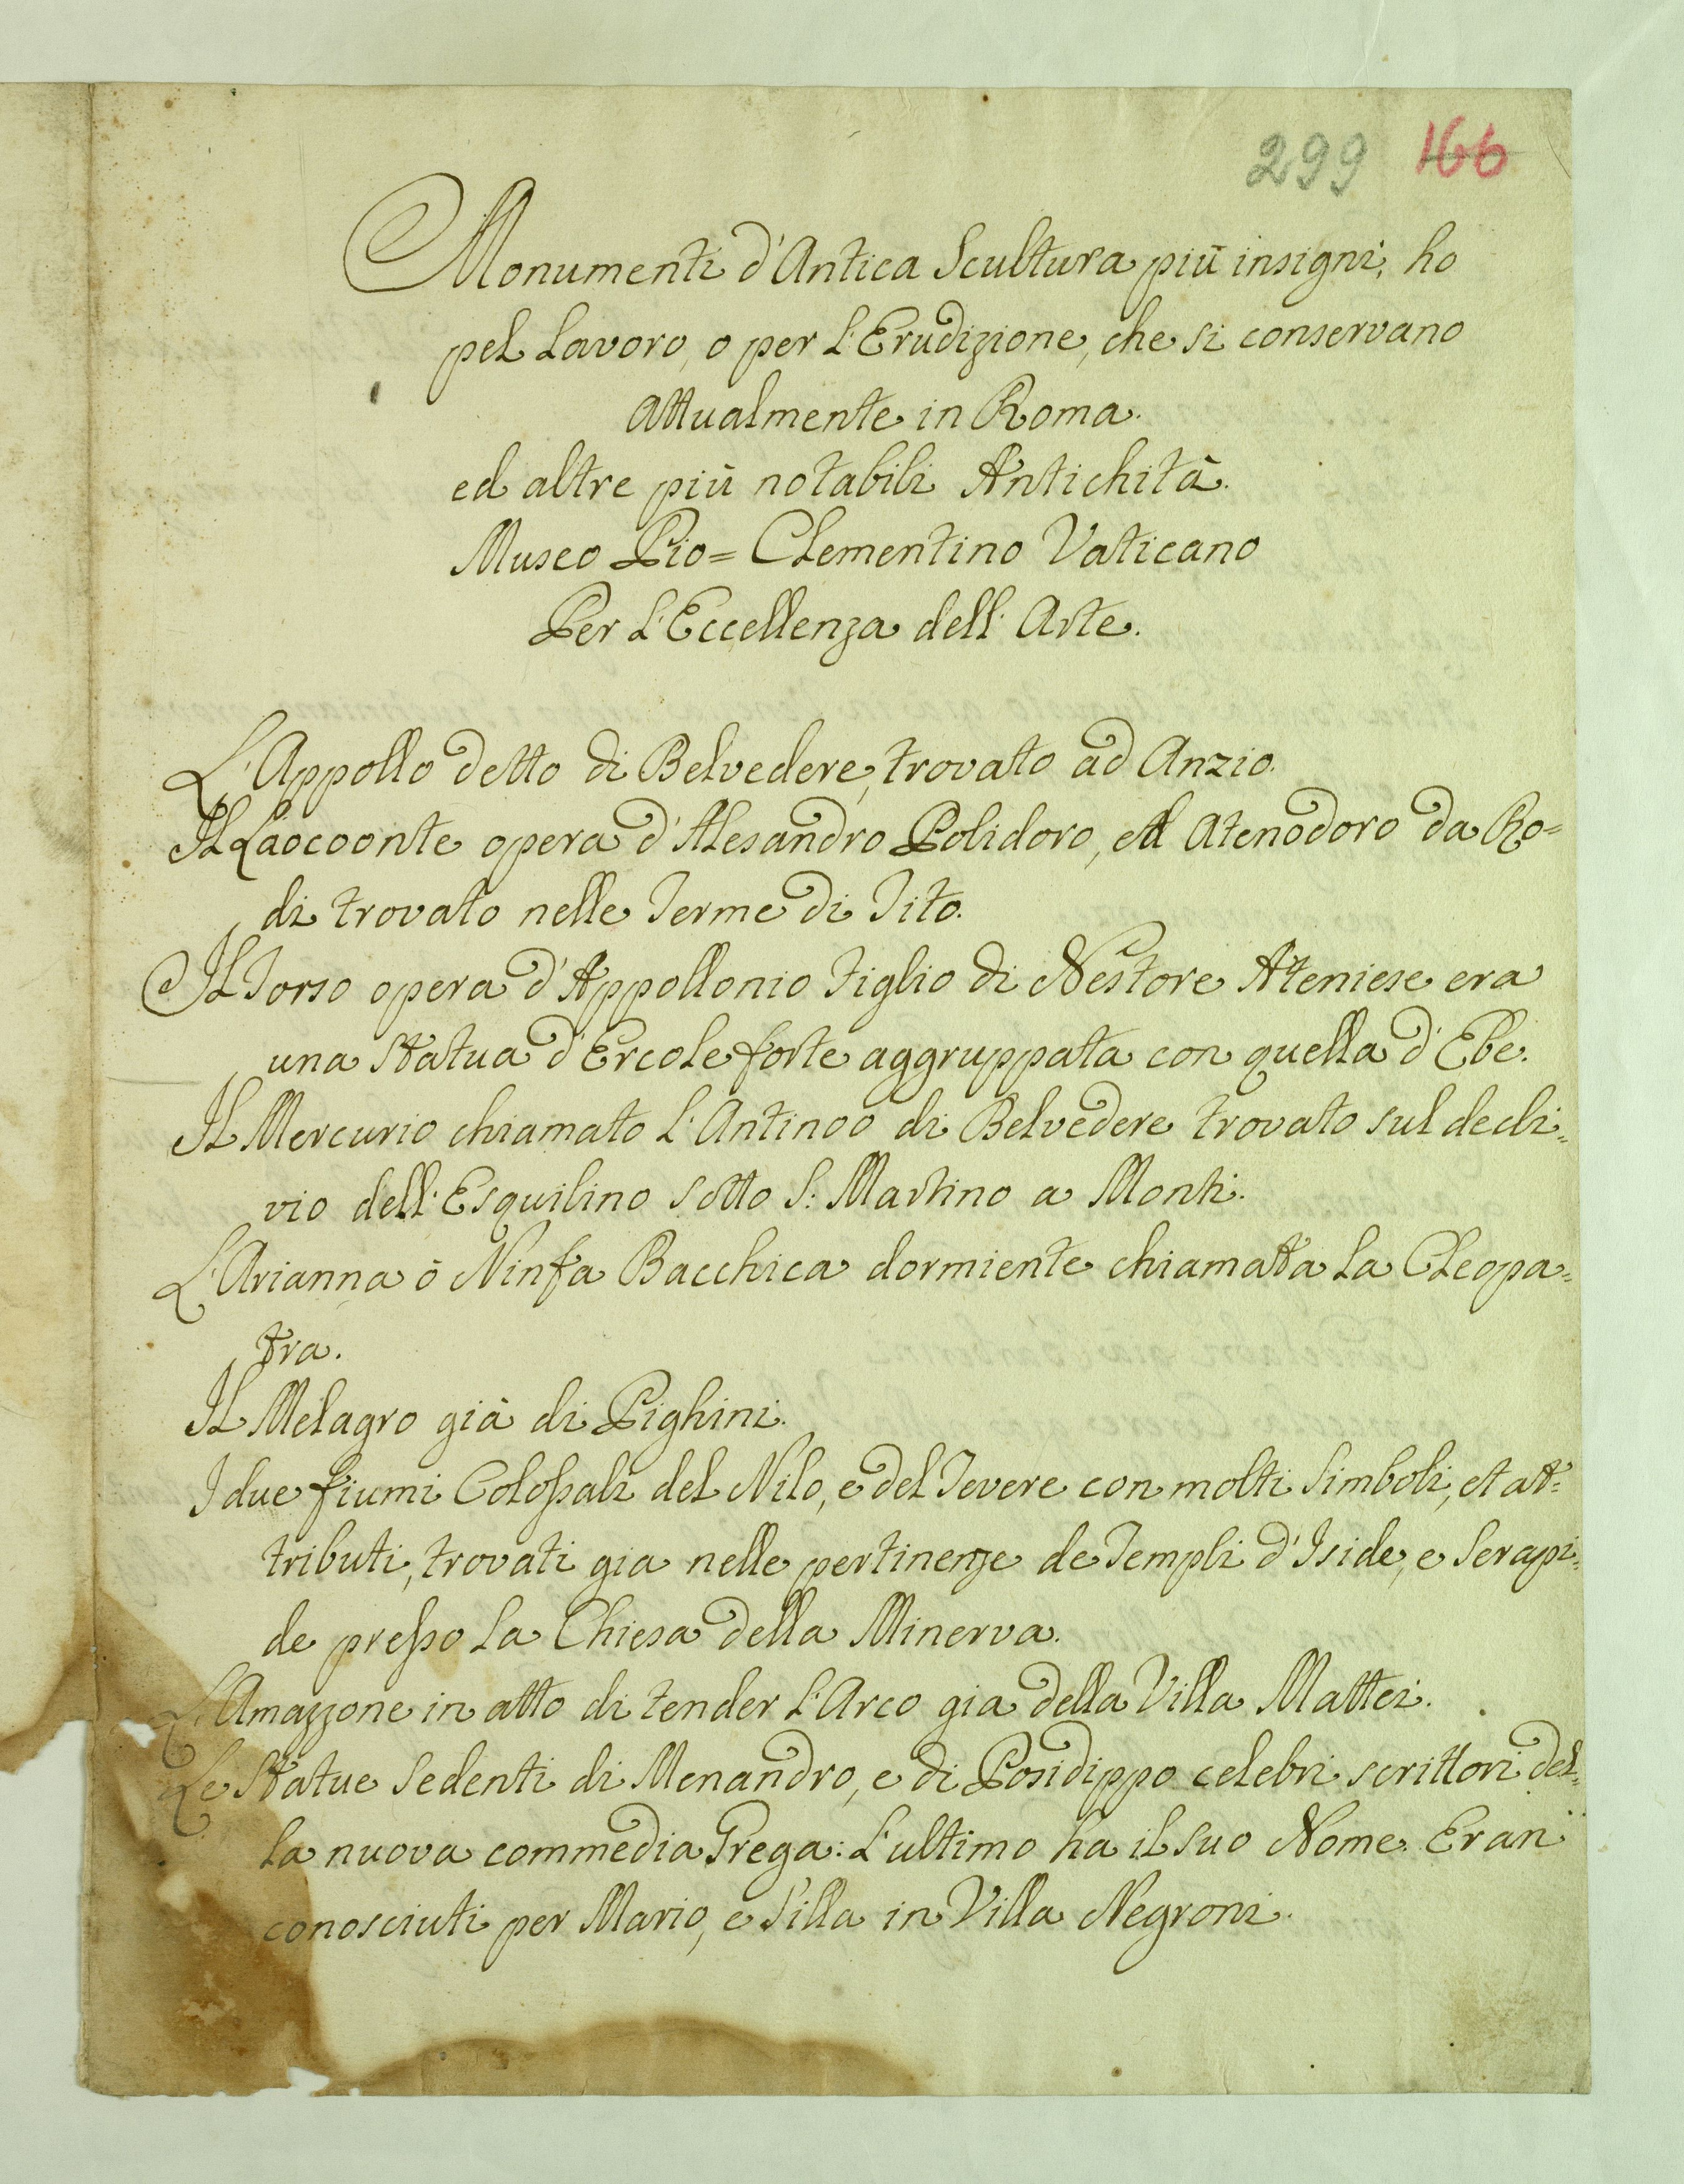 299 166
Monumenti d'Antica Scultura più insigni, ho
pel Lavoro, o per L'Erudizione, che si conservano
attualmente in Roma.
ed altre più notabili Antichità.
Museo Pio= Clementino Vaticano
Per L'Eccellenza dell' Arte.
L'Appollo detto di Belvedere, trovato ad Anzio.
Il Laocoonte opera d'Alesandro Polidoro, ed Atenodoro da Ro=
di trovato nelle Terme di Tito.
Il Torso opera d'Appollonio Figlio di Nestore Ateniese era
una statua d'Ercole forte aggruppata con quella d'Ebe.
Il Mercurio chiamato L'Antinoo di Belvedere trovato sul decli=
vio dell'Esquilino sotto S: Martino a Monti.
L'Arianna ò Ninfa Bacchica dormiente chiamatta La Cleopa=
tra.
Il Melagro già di Pighini.
I due fiumi Colossali del Nilo, e del Tevere con molti Simboli, et at=
tributi, trovati gia nelle pertinenze de Templi d'Iside, e Serapi=
de presso La Chiesa della Minerva.
L'Amazzone in atto di tender L'Arco gia della Villa Mattei.
Le Statue Sedenti di Menandro, e di Posidippo celebri scrittori del=
la nuova commedia Grega: L'ultimo ha il suo Nome. Eran
conosciuti per Mario, e Silla in Villa Negroni.